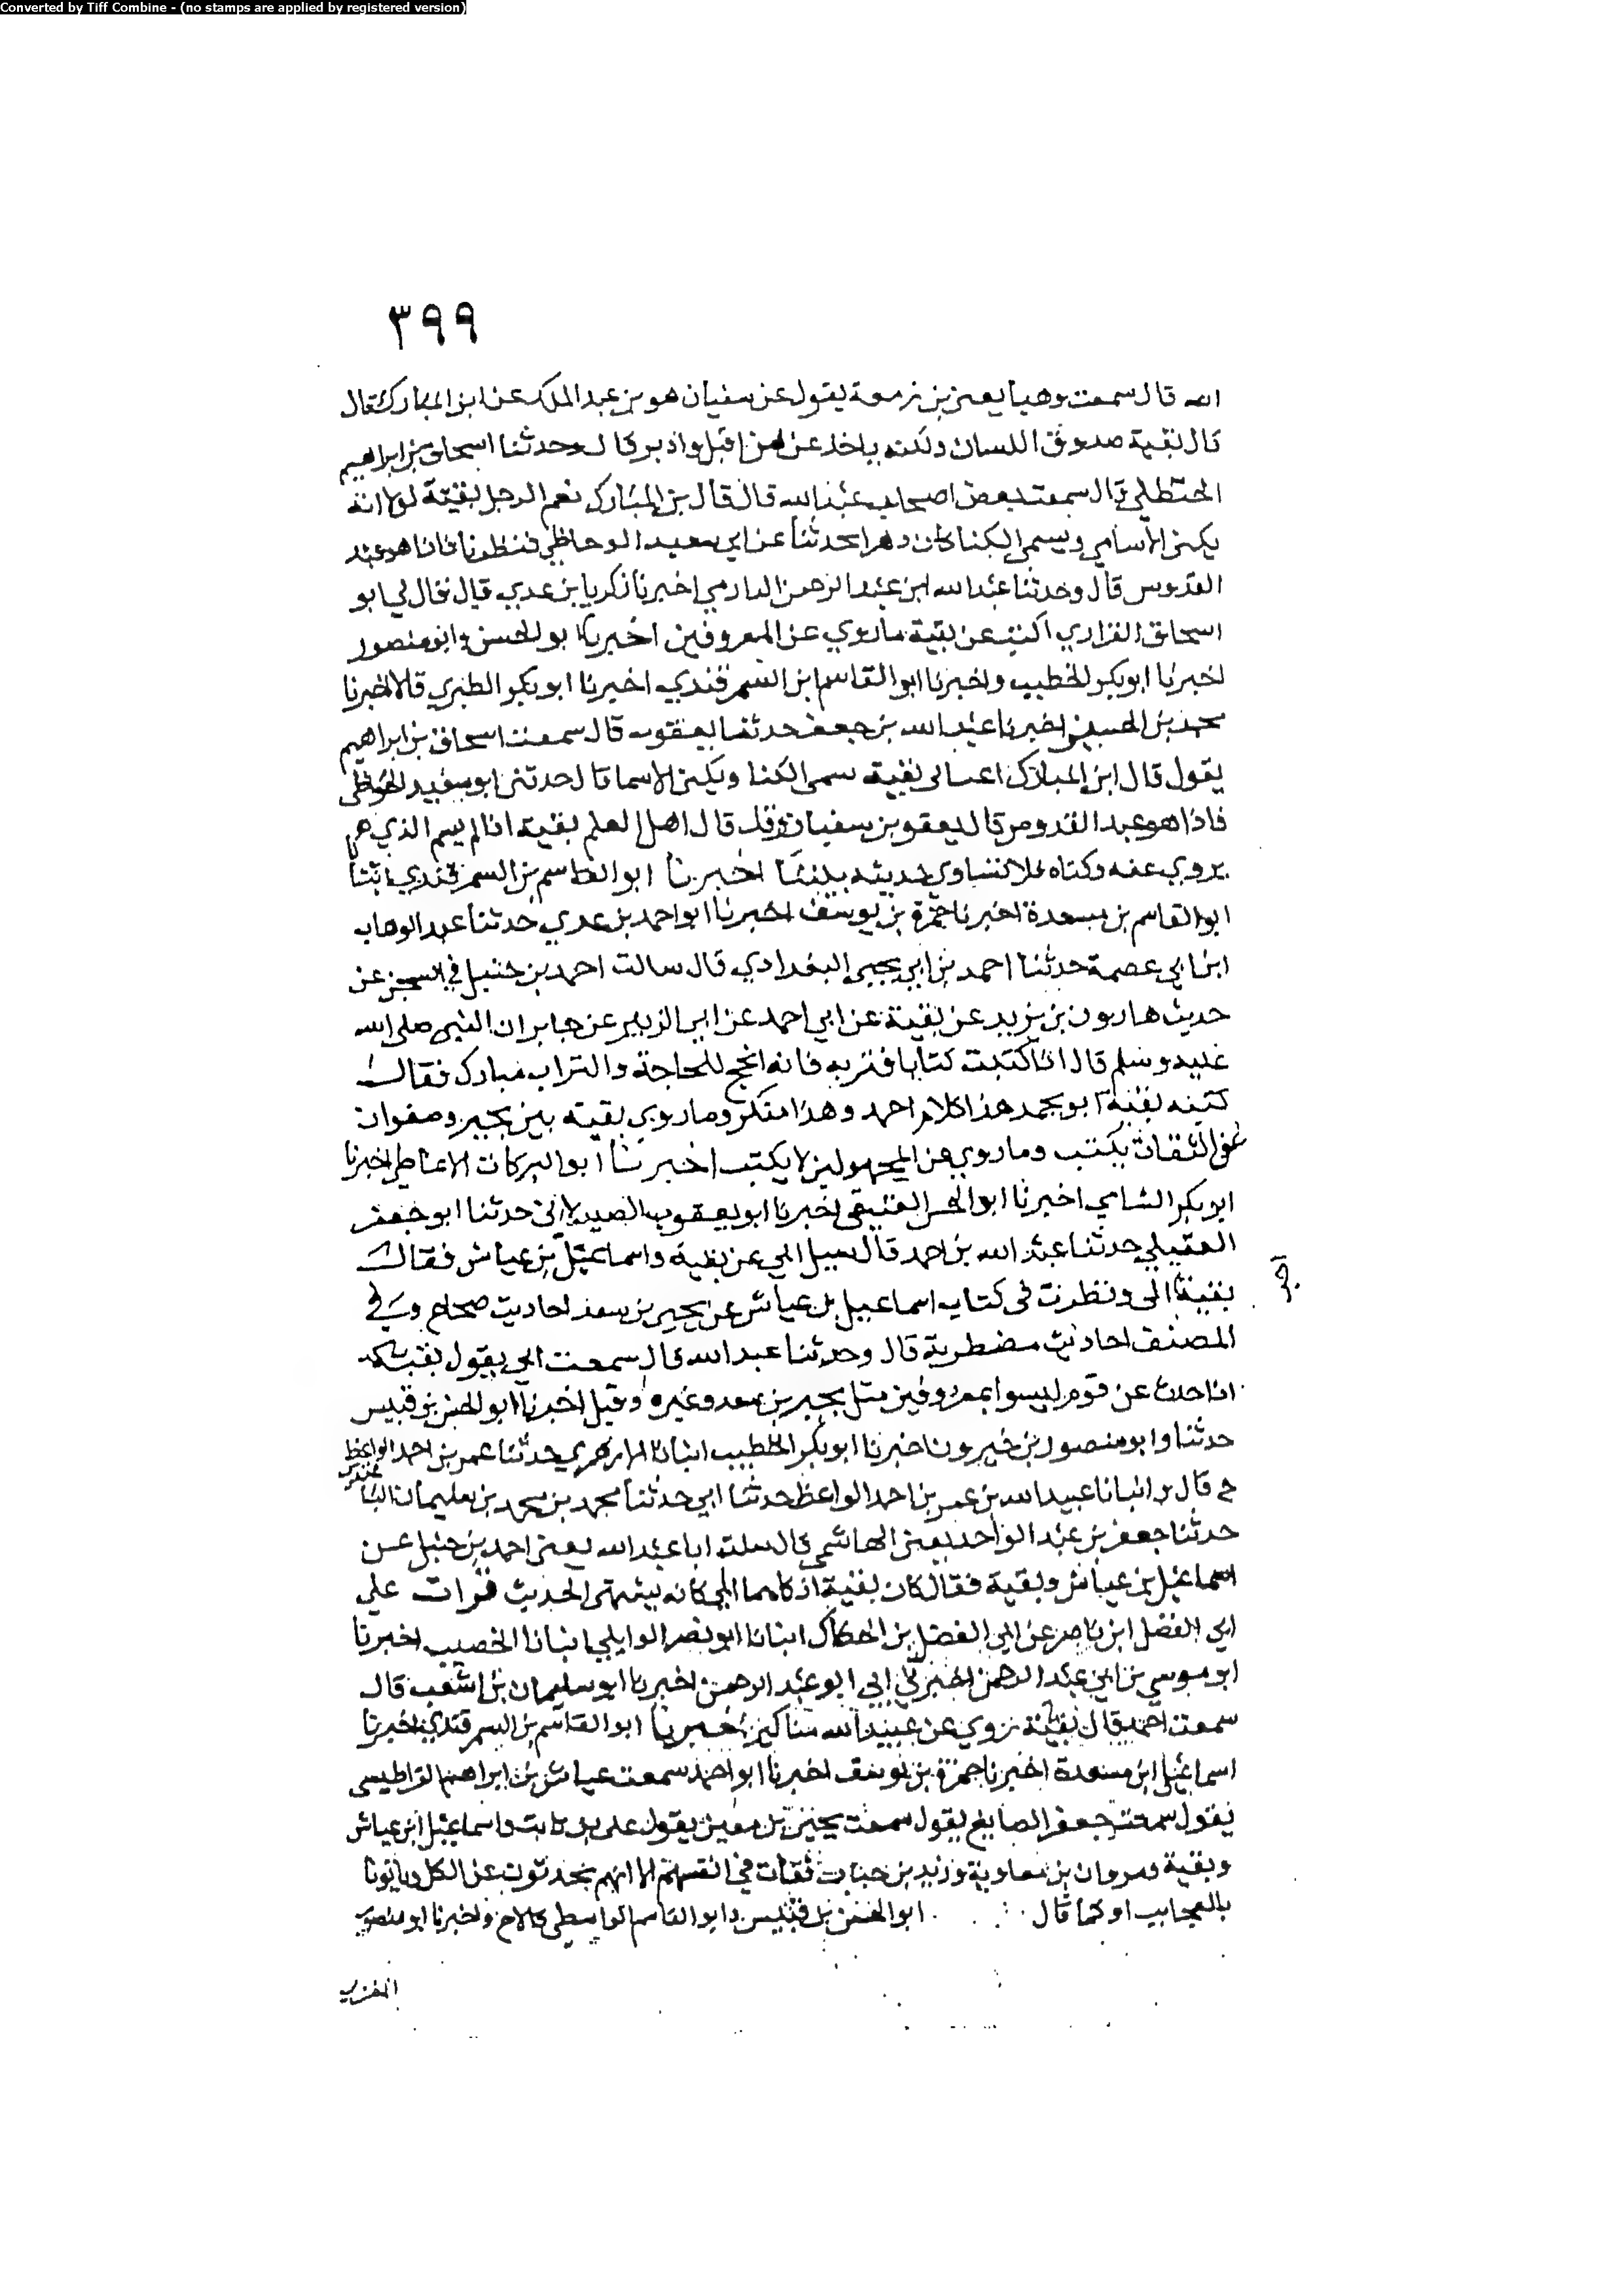 Converted by Tiff Combine - (no stamps are applied by registered version)
٣٩٩
الله قال سمعت وهبا يعني بن زمعة يقول عن سفيان هو بن عبد الملك عن ابن المبارك قال
قال بقية صدوق اللسان ولكنه ياخذ عن من اقبل وادبر قال وحدثنا اسحاق بن ابراهيم
الحنظلي قال سمعت بعض اصحاب عبد الله قال قال بن المبارك نعم الرجل بقية لولا انه
يكني الاسامي ويسمي الكنا كان دهرا يحدثنا عن ابي سعيد الوحاظي فنظرنا فاذا هو عبد
القدوس قال وحدثنا عبد الله ابن عبد الرحمن الدارمي اخبرنا زكريا بن عدي قال قال لي ابو
اسحاق الفزاري اكتب عن بقية ما روي عن المعروفين اخبرنا ابو الحسن وابو منصور
اخبرنا ابو بكر الخطيب واخبرنا ابو القاسم ابن السمرقندي اخبرنا ابو بكر الطبري قالا اخبرنا
محمد بن الحسين اخبرنا عبد الله بن جعفر حدثنا يعقوب قال سمعت اسحاق بن ابراهيم
يقول قال ابن المبارك بقية سمى الكنا ويكني الاسما قال حدثني ابو سعيد الوحاظي
فاذا هو عبد القدوس قال يعقوب بن سفيان وقد قال اهل العلم بقية اذا لم يسم الذي هو
يروي عنه وكناه فلا يساوي حديثه اخبرنا ابو القاسم بن السمرقندي انبأنا
ابو القاسم بن مسعدة اخبرنا حمزة بن يوسف اخبرنا ابو احمد بن عدي حدثنا عبد الوهاب
ابن ابي عصمة حدثنا احمد بن ابي يحيى البغدادي قال سالت احمد بن حنبل في السجن عن
حديث هارون بن يزيد عن بقية عن ابي احمد عن ابي الزبير عن جابر ان النبي صلى الله
عليه وسلم قال اذا كتبت كتابا فتربه فانه انجح للحاجة والتراب مبارك فقال
كتبه بقية ابو محمد هذا كلام احمد وهذا منكر وما روي بقية بين بحير وصفوان
الثقات يكتب وما روي عن المجهولين لا يكتب اخبرنا ابو البركات الانماطي اخبرنا
ابو بكر الشامي اخبرنا ابو الحسن العتيقي اخبرنا ابو يعقوب الصيدلاني حدثنا ابو جعفر
العقيلي حدثنا عبد الله بن احمد قال سيل ابي عن بقية واسماعيل بن عياش فقال
بقية الى ونظرت في كتاب اسماعيل بن عياش عن يحيى بن سعد احاديث صحاح وفي
المصنف احاديث مضطربة قال وحدثنا عبد الله قال سمعت ابي يقول بقية
اذا حدث عن قوم ليسوا بمعروفين مثل بحير بن سعد وغيره وقيل اخبرنا ابو الحسن بن قبيس
حدثنا وابو منصور بن خيرون اخبرنا ابو بكر الخطيب انبانا الازهري حدثنا عمر بن احمد الواعظ
ح قال وانبانا عبيد الله بن عمر بن احمد الواعظ حدثنا ابي حدثنا محمد بن محمد بن سليمان
حدثنا جعفر بن عبد الواحد يعني الهاشمي قال سالت ابا عبد الله يعني احمد بن حنبل عن
اسماعيل بن عياش وبقية فقال كان بقية اذكاهما الي كانه يشتهي الحديث قرات علي
ابي الفضل ابن ناصر عن ابي الفضل بن الحكاك انبانا ابو نصر الوايلي انبانا الخصيب اخبرنا
ابو موسى بن ابي عبد الرحمن اخبرني ابي ابو عبد الرحمن اخبرنا ابو سليمان بن اشعب قال
سمعت احمد قال بقية روي عن عبيد الله مناكير اخبرنا ابو القاسم بن السمرقندي اخبرنا
اسماعيل ابن مسعدة اخبرنا حمزة بن يوسف اخبرنا ابو احمد سمعت عياش بن ابراهيم القراطيسي
يقول سمعت جعفر الصايغ يقول سمعت يحيى بن معين يقول علي بن ثابت واسماعيل ابن عياش
وبقية ومروان بن معاوية وزيد بن حباب ثقات في انفسهم الا انهم يحدثون عن الكل ويأتونا
بالعجايب او كما قال ابو الحسن بن قبيس وابو القاسم الواسطي واخبرنا ابو منصور